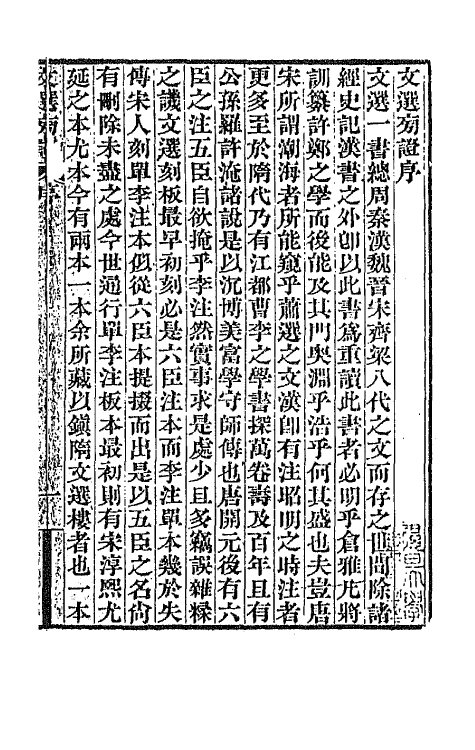 文選旁證序
文選一書總周秦漢魏晉宋齊梁八代之文而存之世間除諸
經史記漢書之外卽以此書爲重讀此書者必明乎倉雅凡將
訓纂許鄭之學而後能及其門奧淵乎浩乎何其盛也夫豈唐
宋所謂潮海者所能窺乎蕭選之文漢卽有注昭明之時注者
更多至於隋代乃有江都曹李之學書探萬卷壽及百年且有
公孫羅許淹諸說是以沉博美富學守師傳也唐開元後有六
臣之注五臣自欲掩乎李注然實事求是處少且多竊誤雜糅
之譏文選刻板最早初刻必是六臣注本而李注單本幾於失
傳宋人刻單李注本似從六臣本提掇而出是以五臣之名尙
有刪除未盡之處今世通行單李注板本最初則有宋淳熙尤
延之本尤本今有兩本一本余所藏以鎭隋文選樓者也一本
文選旁證 序